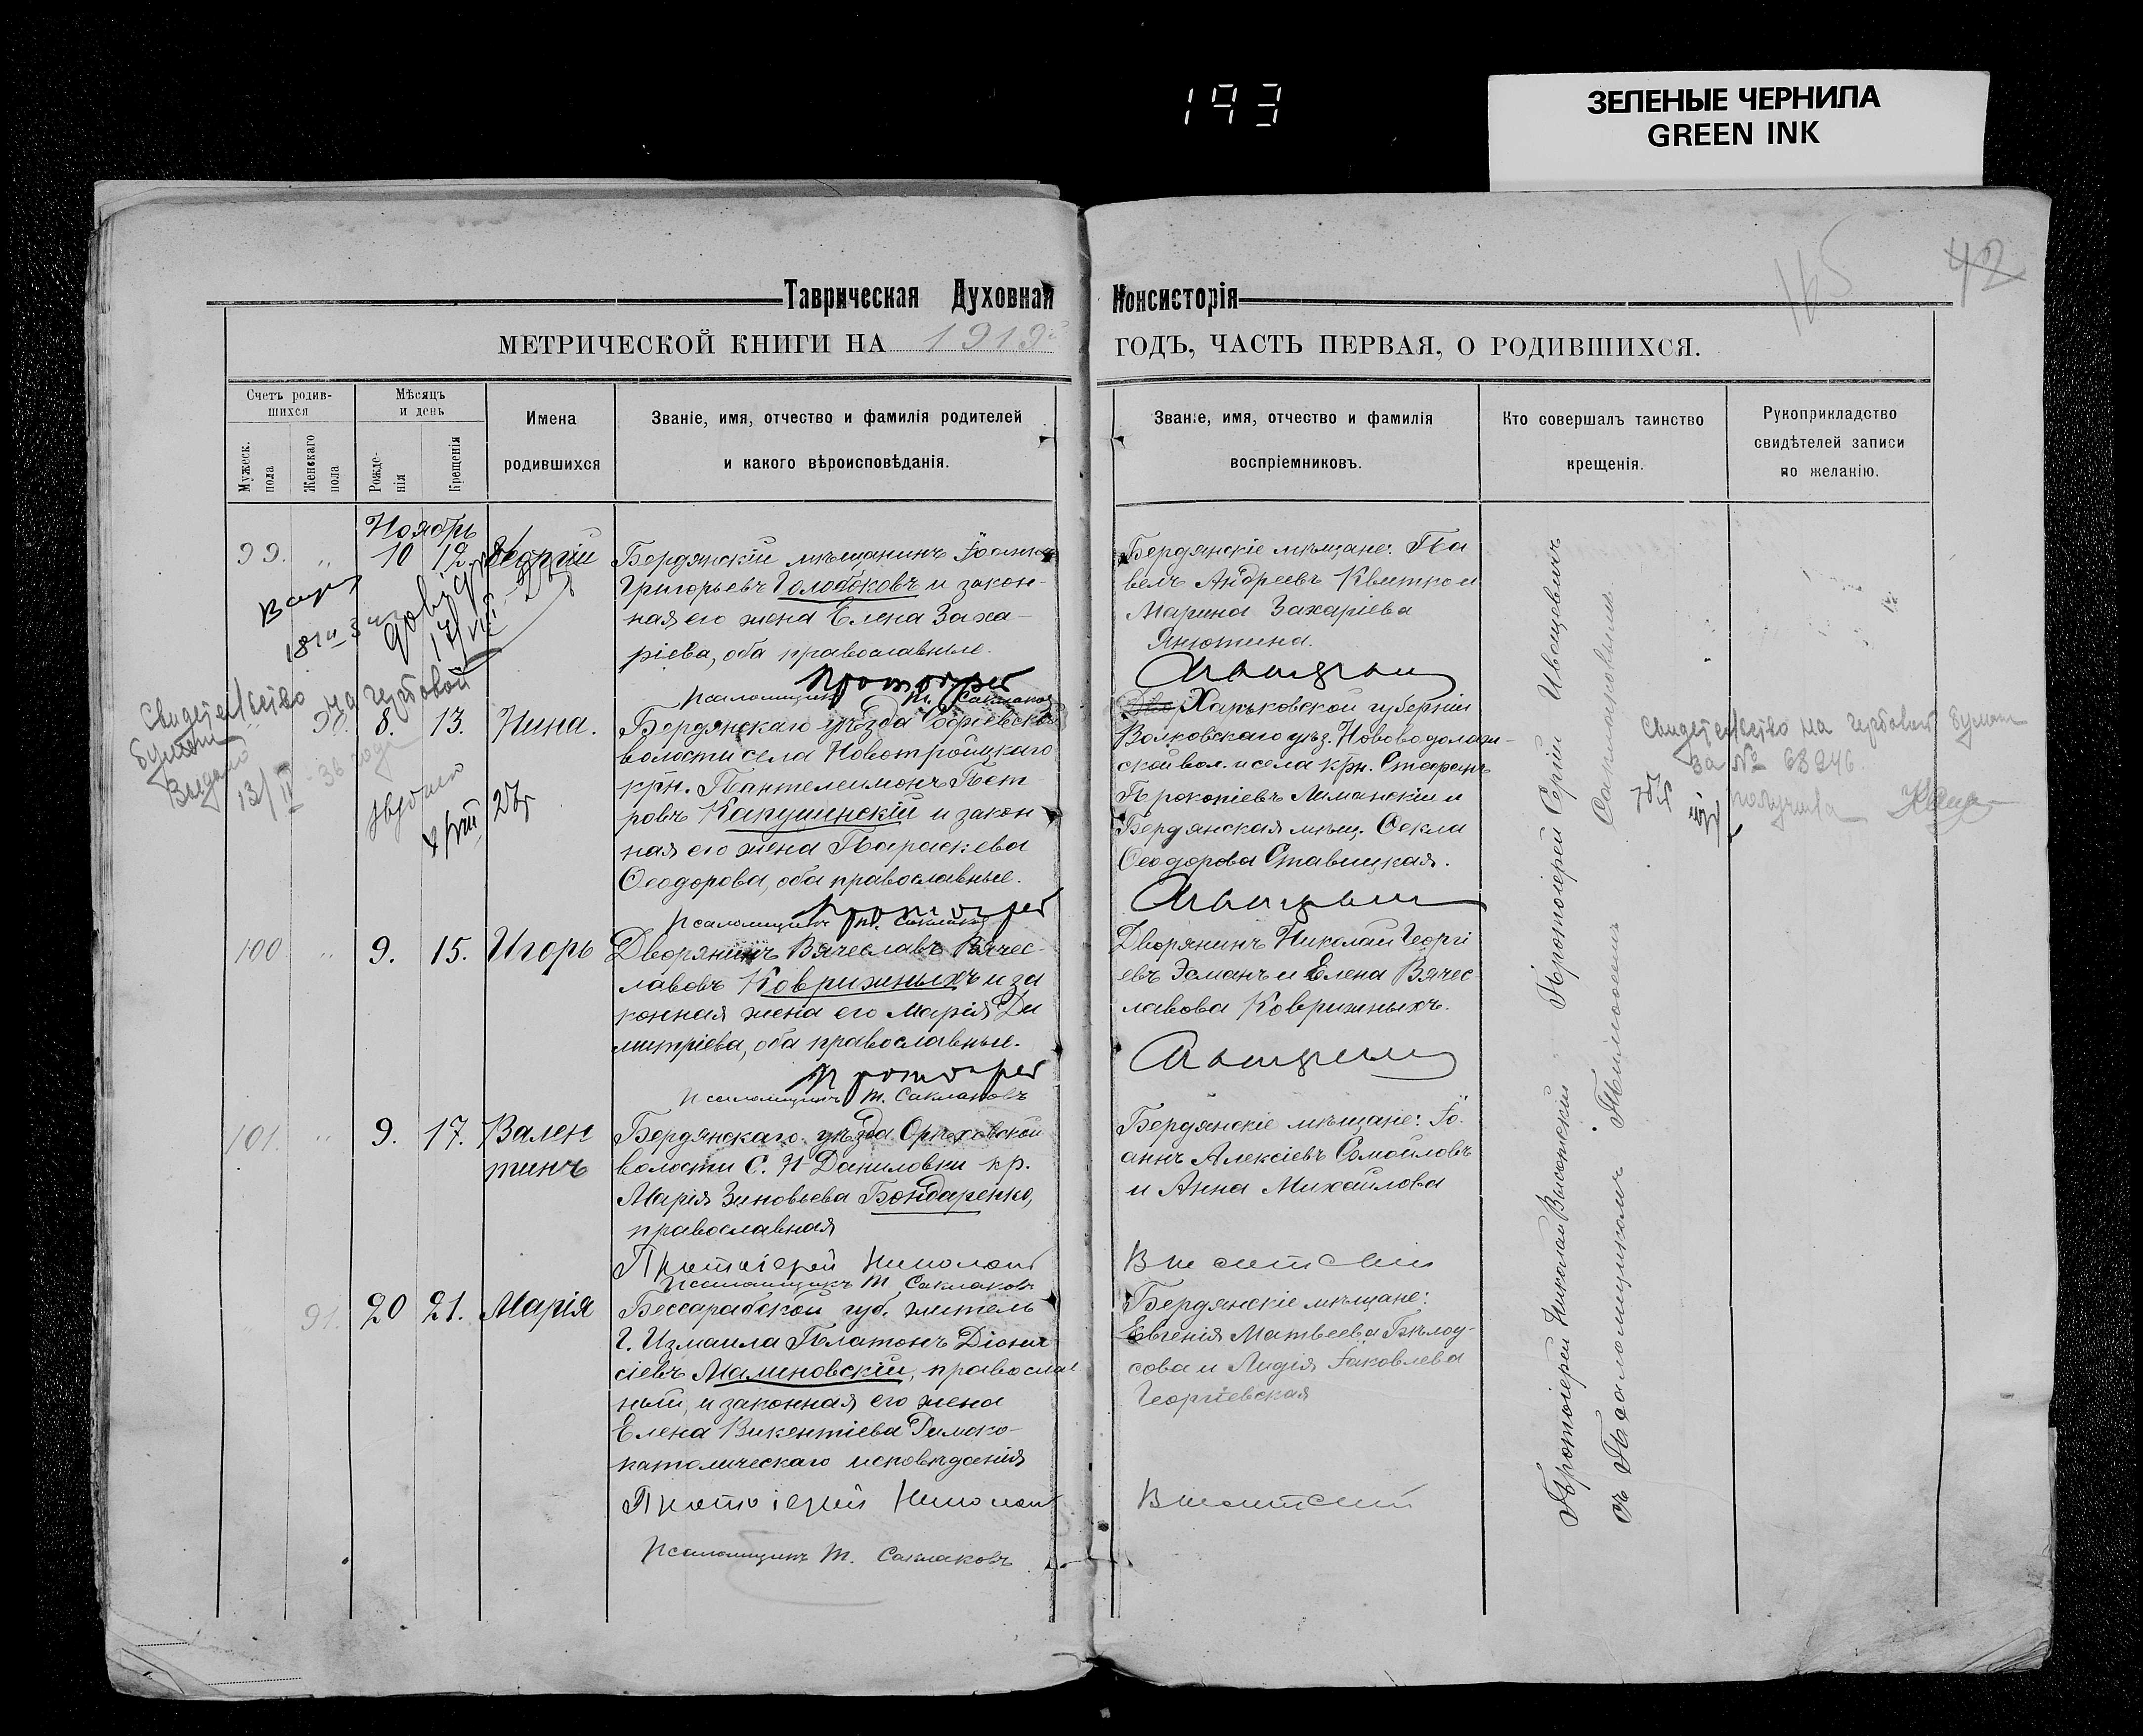 193
ЗЕЛЕНЫЕ ЧЕРНИЛА
GREEN INK
165
42
Таврическая Духовная Консисторія
МЕТРИЧЕСКОЙ КНИГИ НА 1919й ГОДЪ, ЧАСТЬ ПЕРВАЯ, О РОДИВШИХСЯ.
Счетъ родив-
шихся
Мужеск.
пола
Женскаго
пола
Мѣсяцъ
и день
Рожде-
нія
Крещенія
Имена
родившихся
Званіе, имя, отчество и фамилія родителей
и какого вѣроисповѣданія.
Званіе, имя, отчество и фамилія
воспріемниковъ.
Кто совершалъ таинство
крещенія.
Рукоприкладство
свидѣтелей записи
по желанію.
Ноябрь
99. " 10 12. Георгій
Бердянскій мѣщанинъ Іоаннъ
Григорьевъ Голобоковъ и закон-
ная его жена Елена Заха-
ріева, оба православные.
Протоіерей
Псаломщикъ Т. Саклаковъ
Бердянскіе мѣщане: Па
велъ Андреевъ Квитко и
Марина Захаріева
Янютина.
Иващевич
Свидетельство на гербовой
бумаге
Выдано
13/IV - 36 года
90. 8. 13. Нина.
Бердянскаго уѣзда Софіевской
волости села Новотроицкаго
крн. Пантелеимонъ Пет
ровъ Капушинскій и закон
ная его жена Параскева
Ѳеодорова, оба православные.
Протоіерей
Псаломщикъ Т. Саклаковъ
Харьковской губерніи
Волковскаго уѣз. Нововодолаж-
ской вол. и села крн. Стефанъ
Прокопіевъ Лиманскій и
Бердянская мѣщ. Ѳекла
Ѳеодорова Ставицкая.
Иващевич
Свидетельство на гербовой бумаге
за № 68246
получила
100 " 9. 15. Игорь
Дворянинъ Вячеславъ Вячес-
лавовъ Коврижныхъ и за
конная жена его Марія Ди
митріева, оба православные.
Протоіерей
Псаломщикъ Т. Саклаковъ
Дворянинъ Николай Георгі
евъ Эсманъ и Елена Вячес
лавова Коврижныхъ.
Иващевич
101. " 9. 17. Вален
тинъ
Бердянскаго уѣзда Орѣховской
волости С. Н-Даниловки кр.
Марія Зиновьева Бондаренко,
православная
Протоіерей Николай Высотскій
Псаломщикъ Т. Саклаковъ
Бердянскіе мѣщане: Іо.
аннъ Алексіевъ Самойловъ
и Анна Михайлова
91. 20 21. Марія
Бессарабской губ. житель
г. Измаила Платонъ Діони
сіевъ Малиновскій, православ
ный, и законная его жена
Елена Викентіева Римско-
католическаго исповѣданія
Протоіерей Николай Высотскій
Псаломщикъ Т. Саклаковъ
Бердянскіе мѣщане:
Евгенія Матвеева Бѣлоу-
сова и Лидія Іаковлева
Георгіевская
Протоіерей Николай Высотскій Протоіерей Сергій Иващевичъ
съ Псаломщикомъ Тимоѳеемъ Саклаковымъ